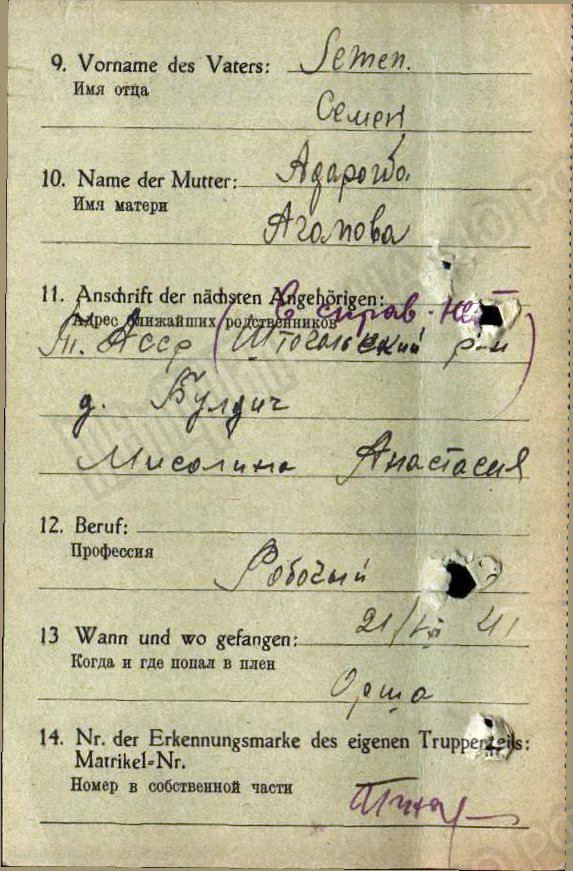 9. Vorname des Vaters: Semen.
Имя отца
Семен
10. Name der Mutter:
Имя матери
Агапова
11. Anschrift der nächsten Angehörigen: В справ. нет
Адрес ближайших родственников
Т. Асср ( р-н )
д. Булдич
Мисолина Анастасия
12. Beruf:
Профессия
Робочый
13 Wann und wo gefangen: 21/ 41
Когда и где попал в плен
Орша
14. Nr. der Erkennungsmarke des eigenen Truppenteils:
Matrikel-Nr.
Номер в собственной части